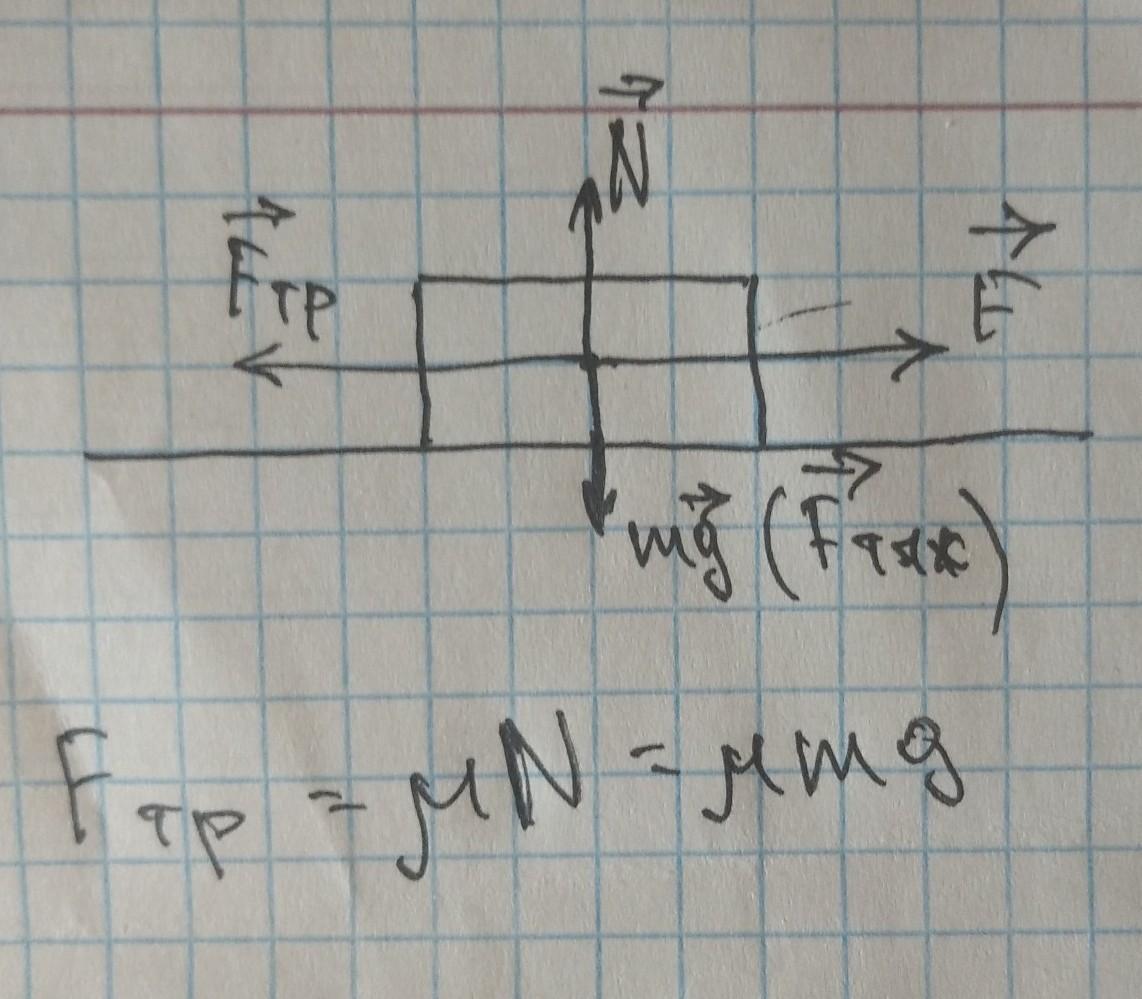 N
Fтр
F
mg (Fтяж)
Fтр = μN = μmg